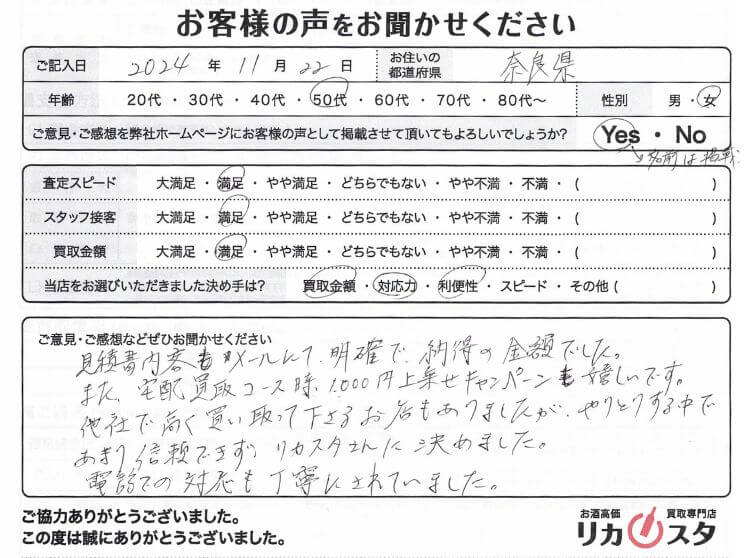 お客様の声をお聞かせください
ご記入日 2024 年 11 月 22 日 お住いの都道府県 奈良県
年齢 20代 ・ 30代 ・ 40代 ・ 50代 ・ 60代 ・ 70代 ・ 80代〜 性別 男 ・ 女
ご意見・ご感想を弊社ホームページにお客様の声として掲載させて頂いてもよろしいでしょうか? Yes ・ No
名前は掲載
査定スピード 大満足 ・ 満足 ・ やや満足 ・ どちらでもない ・ やや不満 ・ 不満 ・ ( )
スタッフ接客 大満足 ・ 満足 ・ やや満足 ・ どちらでもない ・ やや不満 ・ 不満 ・ ( )
買取金額 大満足 ・ 満足 ・ やや満足 ・ どちらでもない ・ やや不満 ・ 不満 ・ ( )
当店をお選びいただきました決め手は? 買取金額 ・ 対応力 ・ 利便性 ・ スピード ・ その他 ( )
ご意見・ご感想などぜひお聞かせください
見積書内容もメールにて、明確で、納得の金額でした。
また、宅配買取コース時、1,000円上乗せキャンペーンも嬉しいです。
他社で高く買い取って下さるお店もありましたが、やりとりする中で
あまり信頼できず、リカスタさんに決めました。
電話での対応も丁寧にされていました。
ご協力ありがとうございました。
この度は誠にありがとうございました。
お酒高価 買取専門店
リカスタ